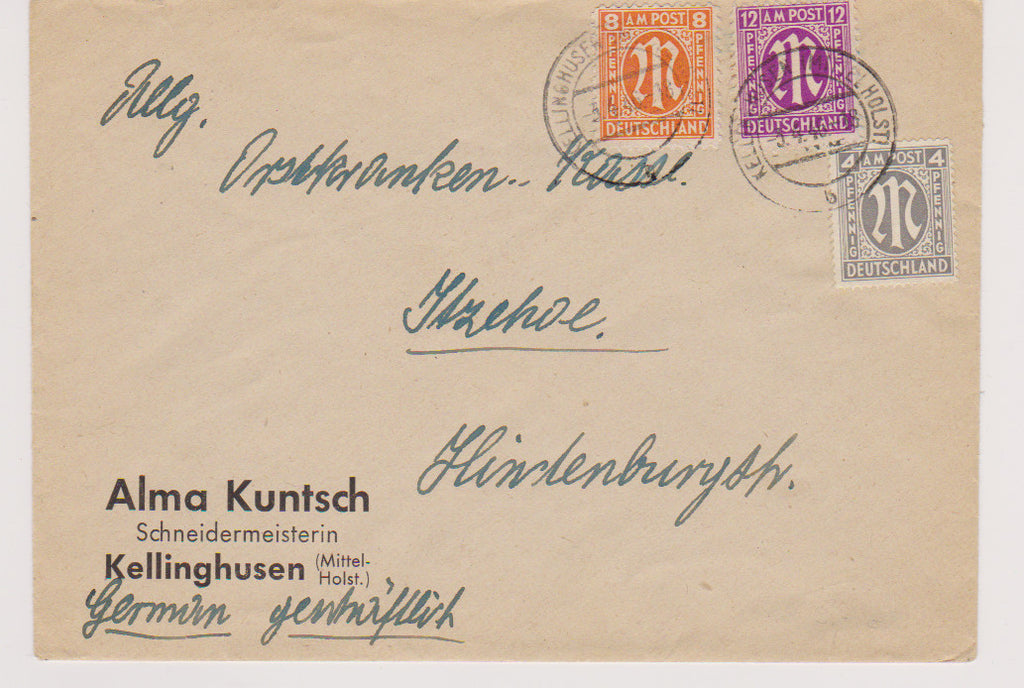 8 AM POST 8
PFENNIG PFENNIG
DEUTSCHLAND
12 AM POST 12
PFENNIG PFENNIG
DEUTSCHLAND
4 AM POST 4
PFENNIG PFENNIG
DEUTSCHLAND
KELLINGHUSEN
b
Allg.
Ortskranken-Kasse.
Itzehoe.
Hindenburgstr.
Alma Kuntsch
Schneidermeisterin
Kellinghusen (Mittel-
Holst.)
German geschäftlich